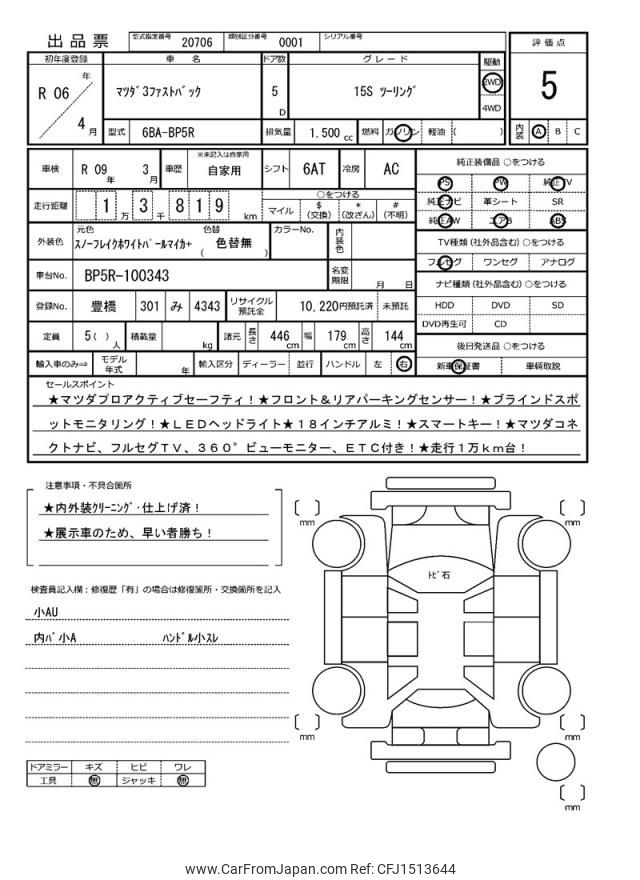 出品票
型式指定番号 20706 類別区分番号 0001 シリアル番号
初年度登録 車名 ドア数 グレード 駆動 評価点
R 06 年 4 月
ﾏﾂﾀﾞ3ﾌｧｽﾄﾊﾞｯｸ 5 D 15S ﾂｰﾘﾝｸﾞ 2WD 4WD 5
型式 6BA-BP5R 排気量 1.500 cc 燃料 ガソリン 軽油 ( ) 内装 A B C
車検 R 09 年 3 月 車歴 ※未記入は自家用 自家用 シフト 6AT 冷房 AC
純正装備品 ○をつける
PS PW 純正TV
純正ナビ 革シート SR
純正AW エアB ABS
走行距離 1 万 3 千 8 1 9 km
○をつける
マイル $ (交換) * (改ざん) # (不明)
外装色 元色 ｽﾉｰﾌﾚｲｸﾎﾜｲﾄﾊﾟｰﾙﾏｲｶ+ 色替 ( 色替無 ) カラーNo. 内装色
TV種類 (社外品含む) ○をつける
フルセグ ワンセグ アナログ
車台No. BP5R-100343 名変期限 月 日
ナビ種類 (社外品含む) ○をつける
HDD DVD SD
DVD再生可 CD
登録No. 豊橋 301 み 4343 リサイクル預託金 10,220円預託済 未預託
定員 5( ) 人 積載量 kg 諸元 長さ 446 cm 幅 179 cm 高さ 144 cm
後日発送品 ○をつける
新車保証書 車輌取説
輸入車のみ⇨ モデル年式 年 輸入区分 ディーラー 並行 ハンドル 左 右
セールスポイント
★マツダプロアクティブセーフティ！★フロント＆リアパーキングセンサー！★ブラインドスポ
ットモニタリング！★ＬＥＤヘッドライト★１８インチアルミ！★スマートキー！★マツダコネ
クトナビ、フルセグＴＶ、３６０°ビューモニター、ＥＴＣ付き！★走行１万ｋｍ台！
注意事項・不具合箇所
★内外装ｸﾘｰﾆﾝｸﾞ･仕上げ済！
★展示車のため、早い者勝ち！
検査員記入欄：修復歴「有」の場合は修復箇所・交換箇所を記入
小AU
内ﾊﾞ小A ﾊﾝﾄﾞﾙ小スレ
ドアミラー キズ ヒビ ワレ
工具 無 ジャッキ 無
〔 〕 mm
〔 〕 mm
ﾄﾋﾞ石
〔 〕 mm
〔 〕 mm
〔 〕 mm
www.CarFromJapan.com Ref: CFJ1513644